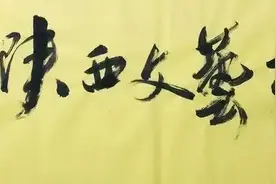 陕西文艺